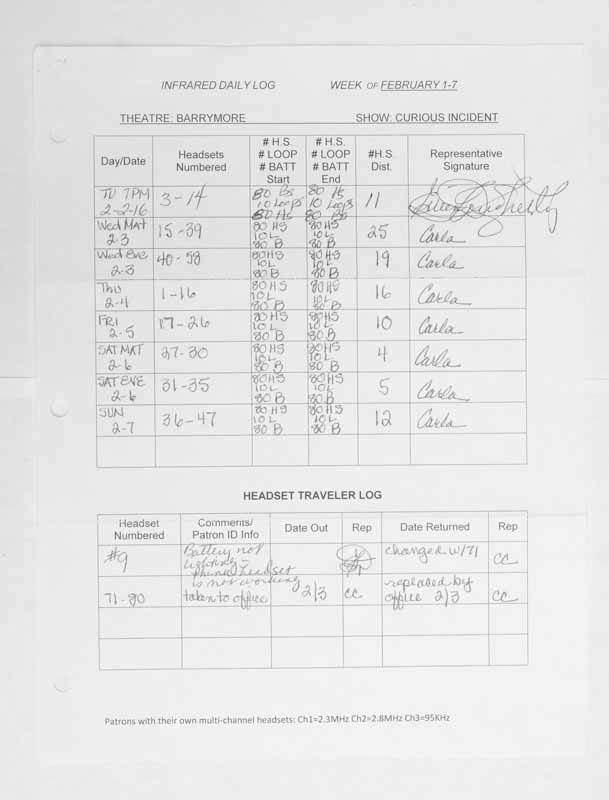 INFRARED DAILY LOG WEEK OF FEBRUARY 1-7
THEATRE: BARRYMORE SHOW: CURIOUS INCIDENT
Day/Date Headsets Numbered # H.S. # LOOP # BATT Start # H.S. # LOOP # BATT End #H.S. Dist. Representative Signature
TU 7PM 2-2-16 3-14 80 Bs 10 Loops 80 Hs 80 Hs 10 Loops 80 Bs 11
Wed MAT 2-3 15-39 80 HS 10 L 80 B 80 HS 10 L 80 B 25 Carla
Wed eve 2-3 40-58 80 HS 10 L 80 B 80 HS 10 L 80 B 19 Carla
THU 2-4 1-16 80 HS 10 L 80 B 80 HS 10 L 80 B 16 Carla
FRI 2-5 17-26 80 HS 10 L 80 B 80 HS 10 L 80 B 10 Carla
SAT MAT 2-6 27-30 80 HS 10 L 80 B 80 HS 10 L 80 B 4 Carla
SAT EVE 2-6 31-35 80 HS 10 L 80 B 80 HS 10 L 80 B 5 Carla
SUN 2-7 36-47 80 HS 10 L 80 B 80 HS 10 L 80 B 12 Carla
HEADSET TRAVELER LOG
Headset Numbered Comments/ Patron ID Info Date Out Rep Date Returned Rep
#9 Battery not lighting - headset is not working changed w/71 CC
71-80 taken to office 2/3 CC replaced by office 2/3 CC
Patrons with their own multi-channel headsets: Ch1=2.3MHz Ch2=2.8MHz Ch3=95KHz